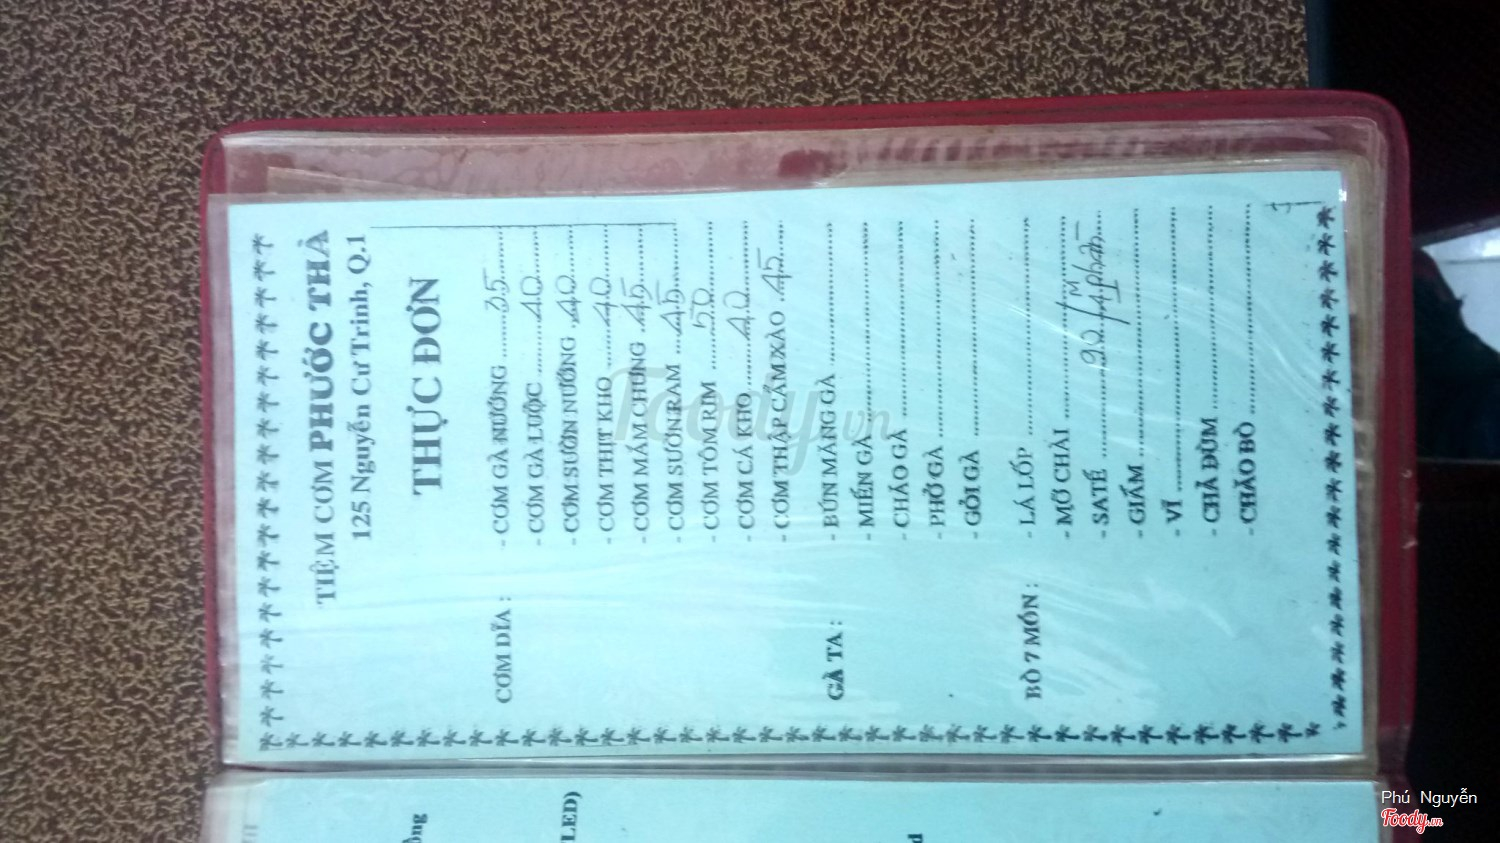 TIỆM CƠM PHƯỚC THÀ
125 Nguyễn Cư Trinh, Q.1
THỰC ĐƠN
CƠM DĨA :
- CƠM GÀ NƯỚNG 35
- CƠM GÀ LUỘC 40
- CƠM SƯỜN NƯỚNG 40
- CƠM THỊT KHO 40
- CƠM MẮM CHƯNG 45
- CƠM SƯỜN RAM 45
- CƠM TÔM RIM 50
- CƠM CÁ KHO 40
- CƠM THẬP CẨM XÀO 45
GÀ TA :
- BÚN MĂNG GÀ
- MIẾN GÀ
- CHÁO GÀ
- PHỞ GÀ
- GỎI GÀ
BÒ 7 MÓN :
- LÁ LỐP
- MỠ CHÀI
- SATẾ 90/1 phần
- GIẤM
- VĨ
- CHẢ ĐÙM
- CHÁO BÒ
ông
LED)
Foody.vn
Phú Nguyễn
Foody.vn